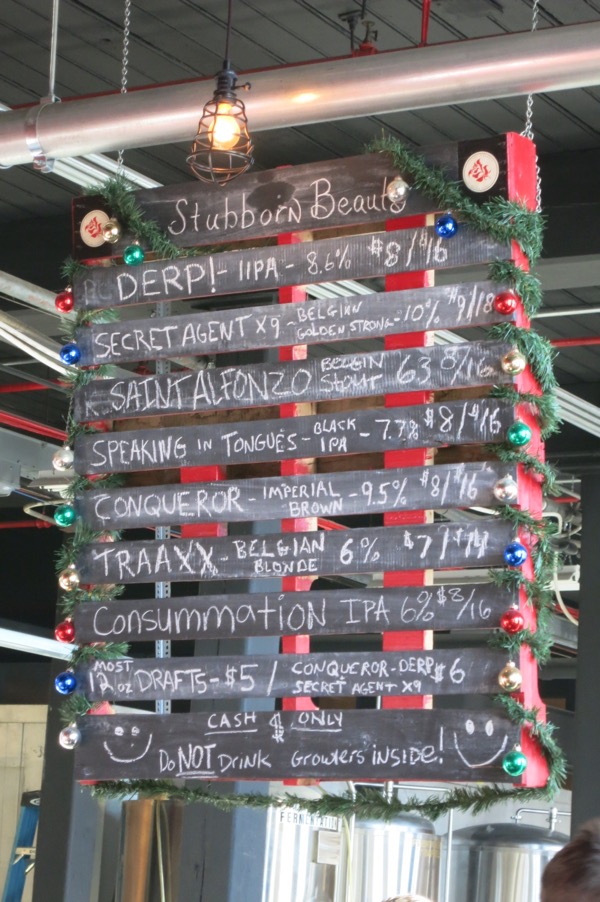 Stubborn Beauty
DERP! - IIPA - 8.6% $8/$16
SECRET AGENT X9 - BELGIAN GOLDEN STRONG - 10% $9/18
SAINT ALFONZO BELGIN STOUT 6.3 8/16
SPEAKING IN TONGUES - BLACK IPA - 7.7% $8/$16
CONQUEROR - IMPERIAL BROWN - 9.5% $8/$16
TRAAXX - BELGIAN BLONDE 6% $7/$14
CONSUMMATION IPA 6% $8/16
MOST 12 OZ DRAFTS - $5 / CONQUEROR - DERP SECRET AGENT X9 $6
CASH $ ONLY
Do NOT DRINK Growlers inside!